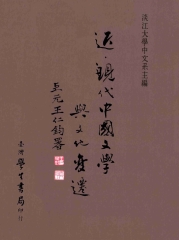 淡江大學中文系主編
近、現代中國文學
與文化變遷
王仁鈞署
臺灣學生書局印行